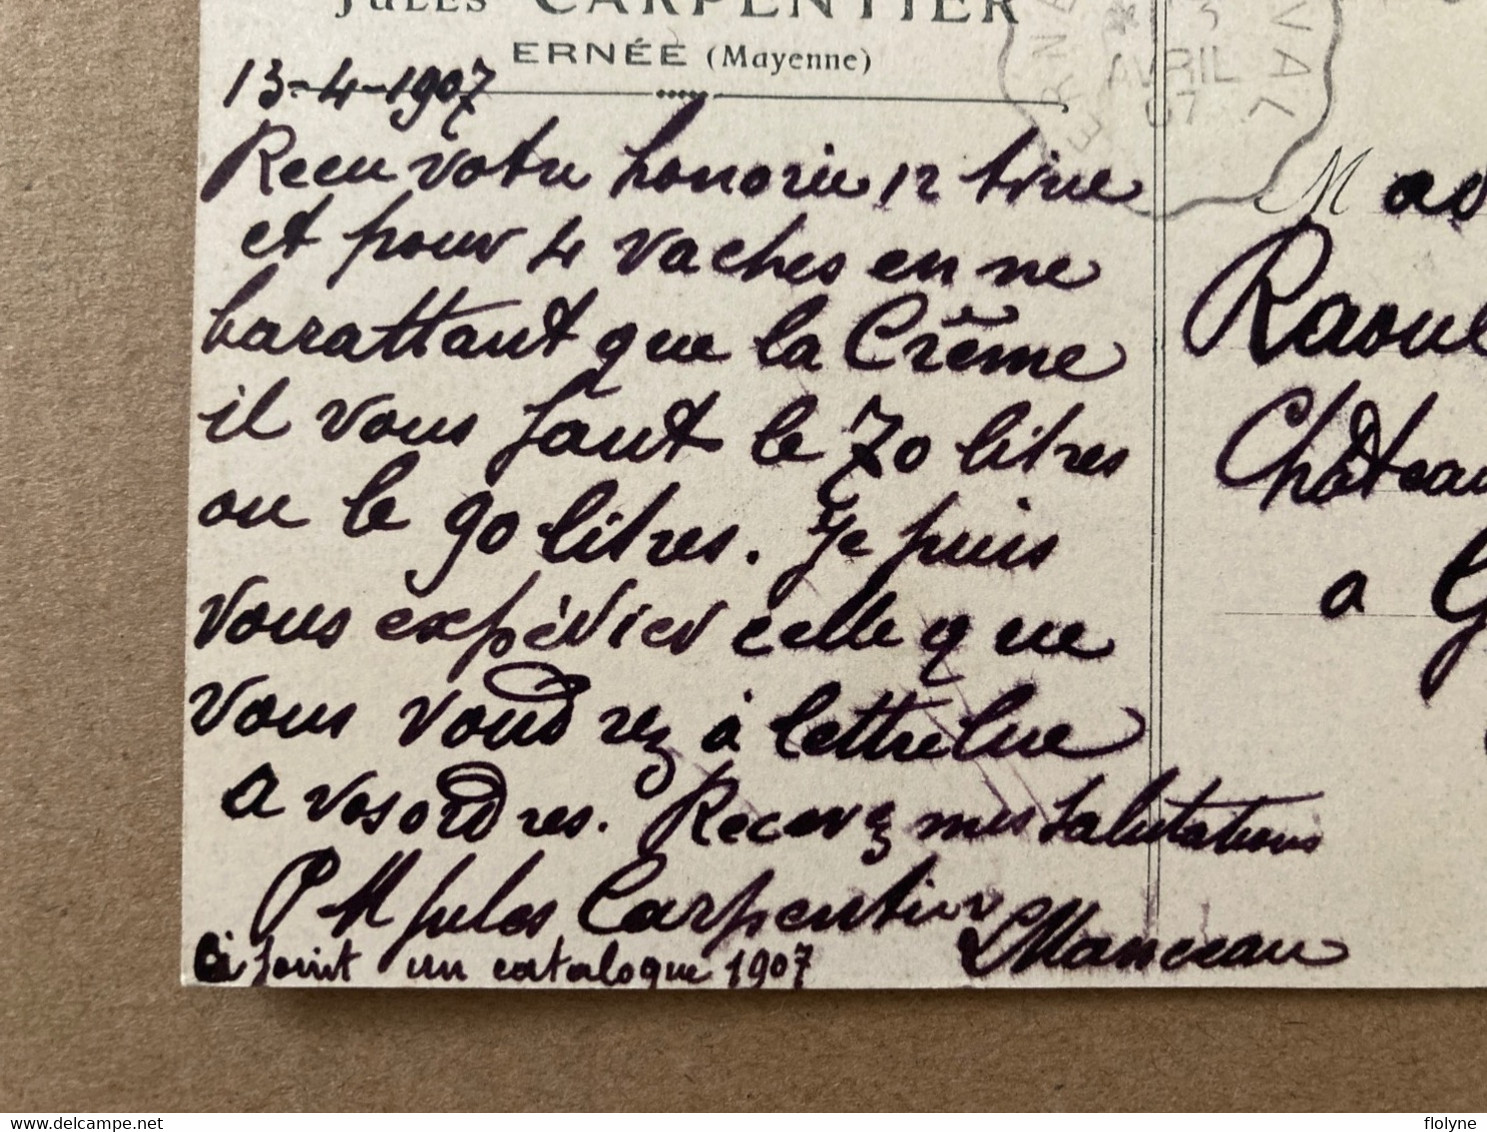 JULES CARPENTIER
ERNÉE (Mayenne)
13-4-1907
Recu votre honorée 12
et pour 4 vaches en ne
barattant que la Crême
il vous faut le 70 litres
ou le 90 litres. Je puis
vous expédier celle que
vous voudrez à lettre lue
a vos ordres. Recevez mes salutations
P M Jules Carpentier
LManceau
Ci joint un catalogue 1907
AVRIL
07
Raoul
Château
a G
flolyne